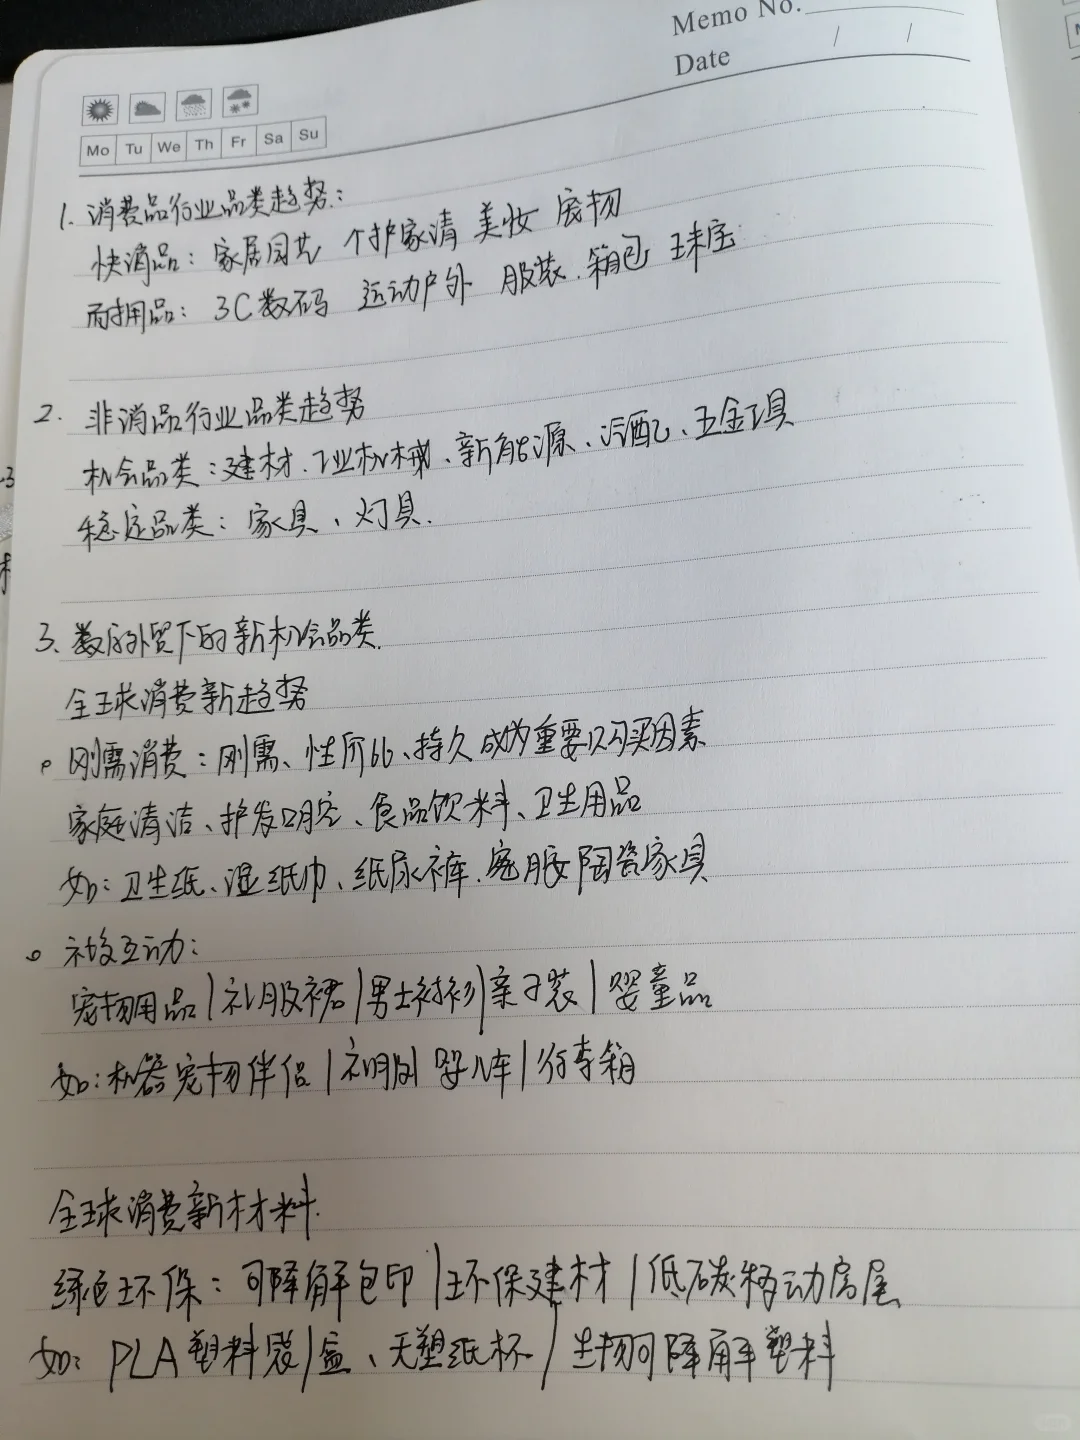 Memo No.
Date / /
Mo Tu We Th Fr Sa Su
1. 消费品行业品类趋势:
快消品: 家居园艺 个护家清 美妆 宠物
耐用品: 3C数码 运动户外 服装、箱包 珠宝
2. 非消品行业品类趋势
机会品类:建材、工业机械、新能源、汽配、五金工具
稳定品类: 家具、灯具.
3、数字外贸下的新机会品类.
全球消费新趋势
刚需消费:刚需、性价比、持久成为重要购买因素
家庭清洁、护发口腔、食品饮料、卫生用品
如:卫生纸、湿纸巾、纸尿裤、宠服 陶瓷家具
社交互动:
宠物用品|礼服裙|男士衬衫|亲子装|婴童品
如:机器宠物伴侣|礼服|婴儿车|行李箱
全球消费新材料.
绿色环保: 可降解包印|环保建材|低碳移动房屋
如: PLA塑料袋/盒、无塑纸杯/生物可降解塑料